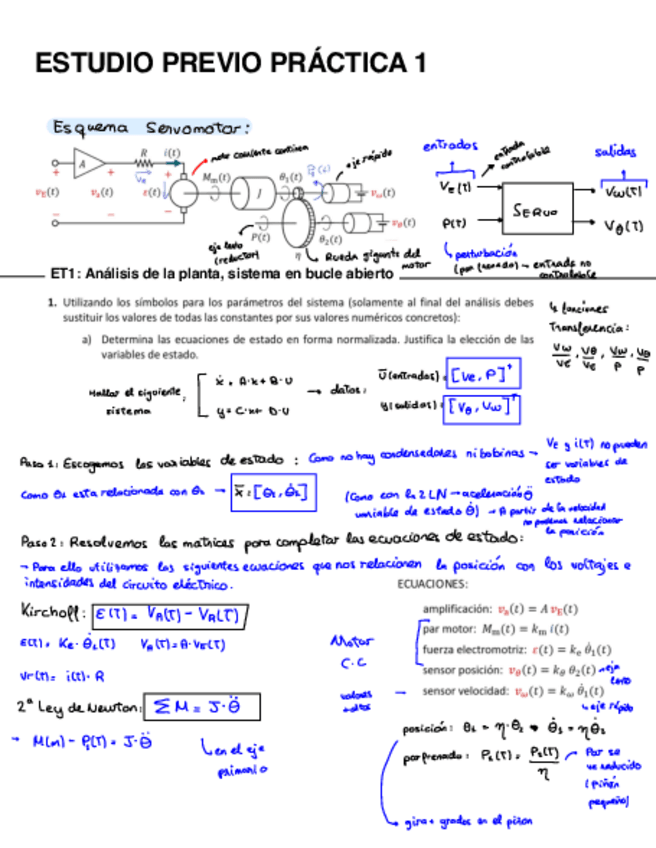 ESTUDIO PREVIO PRÁCTICA 1
Esquema Servomotor:
motor corriente continua
eje rápido
R i(t)
A
M_m(t)
J
θ₁(t)
P₁(t)
v_E(t) v_a(t) ε(t)
v_R
v_ω(t)
v_θ(t)
P(t)
η
θ₂(t)
eje lento
(reductor)
Rueda gigante del
motor
entradas
entrada
controlable
salidas
V_E(t)
P(t)
SERVO
Vω(t)
Vθ(t)
perturbación
(par frenado) → entrada no
controlable
ET1: Análisis de la planta, sistema en bucle abierto
1. Utilizando los símbolos para los parámetros del sistema (solamente al final del análisis debes
sustituir los valores de todas las constantes por sus valores numéricos concretos):
a) Determina las ecuaciones de estado en forma normalizada. Justifica la elección de las
variables de estado.
4 funciones
Transferencia:
Vω/Ve, Vθ/Ve, Vω/P, Vθ/P
Hallar el siguiente
sistema
ẋ = A·x + B·U
y = C·x + D·U
→ datos:
U(entradas) = [Ve, P]ᵀ
y(salidas) = [Vθ, Vω]ᵀ
Paso 1: Escogemos las variables de estado: Como no hay condensadores ni bobinas →
V_E y i(t) no pueden
ser variables de
estado
Como θ₁ esta relacionada con θ₂ →
(Como con la 2LN → aceleración θ̈
variable de estado θ̇) → A partir de la velocidad
no podemos relacionar
la posición
Paso 2: Resolvemos las matrices para completar las ecuaciones de estado:
→ Para ello utilizamos las siguientes ecuaciones que nos relacionen la posición con los voltajes e
intensidades del circuito eléctrico.
ECUACIONES:
Kirchoff: ε(t) = V_A(t) − V_R(t)
V_A(t) = A·V_E(t)
Vr(t) = i(t)·R
2ª Ley de Newton: ΣM = J·θ̈
en el eje
primario
Motor
C.C
amplificación: v_a(t) = A v_E(t)
par motor: M_m(t) = k_m i(t)
fuerza electromotriz: ε(t) = k_e θ̇₁(t)
sensor posición: v_θ(t) = k_θ θ₂(t) → eje
lento
sensor velocidad: v_ω(t) = k_ω θ̇₁(t)
↳ eje rápido
valores
posición: θ₁ = η·θ₂ → θ̇₁ = ηθ̇₂
par frenado:
Par se
ve reducido
(piñón
pequeño)
gira + grados en el piñon